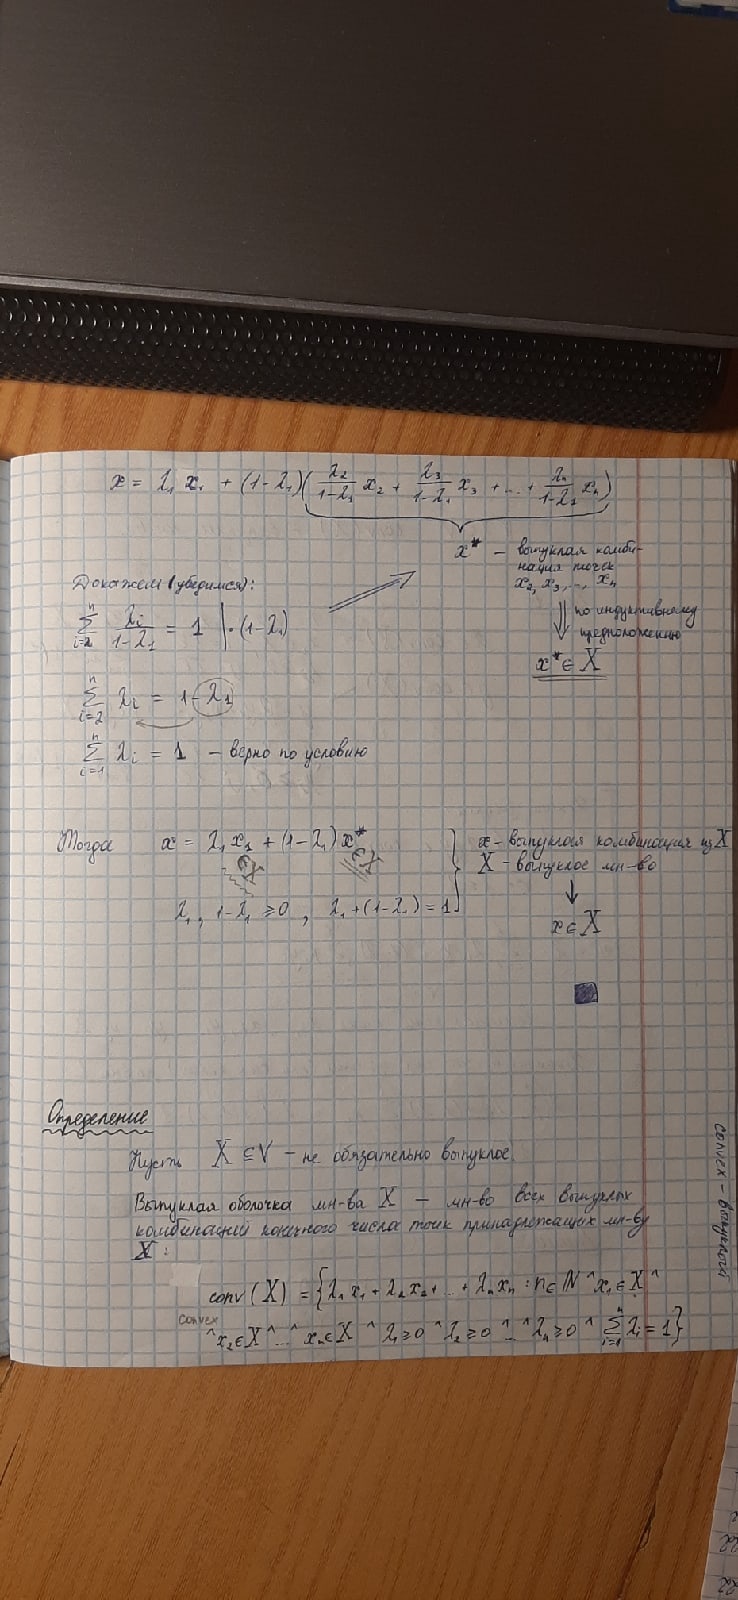 x = λ₁ x₁ + (1-λ₁)(λ₂/(1-λ₁) x₂ + λ₃/(1-λ₁) x₃ + ... + λₙ/(1-λ₁) xₙ)
x* – выпуклая комби-
нация точек
x₂, x₃, ..., xₙ
Докажем (убедимся):
∑ᵢ₌₂ⁿ λᵢ/(1-λ₁) = 1 | · (1-λ₁)
⇓ по индуктивному
предположению
x* ∈ X
∑ᵢ₌₂ⁿ λᵢ = 1-λ₁
∑ᵢ₌₁ⁿ λᵢ = 1 – верно по условию
Тогда x = λ₁x₁ + (1-λ₁)x*
∈X ∈X
λ₁, 1-λ₁ ≥ 0, λ₁+(1-λ₁) = 1
x – выпуклая комбинация из X
X – выпуклое мн-во
↓
x ∈ X
Определение
Пусть X ⊆ V – не обязательно выпуклое.
Выпуклая оболочка мн-ва X – мн-во всех выпуклых
комбинаций конечного числа точек принадлежащих мн-ву
X :
conv(X) = {λ₁x₁ + λ₂x₂ + ... + λₙxₙ : n ∈ N ^ x₁ ∈ X ^
convex
^ x₂ ∈ X ^ ... ^ xₙ ∈ X ^ λ₁ ≥ 0 ^ λ₂ ≥ 0 ^ ... ^ λₙ ≥ 0 ^ ∑ᵢ₌₁ⁿ λᵢ = 1}
convex – выпуклый